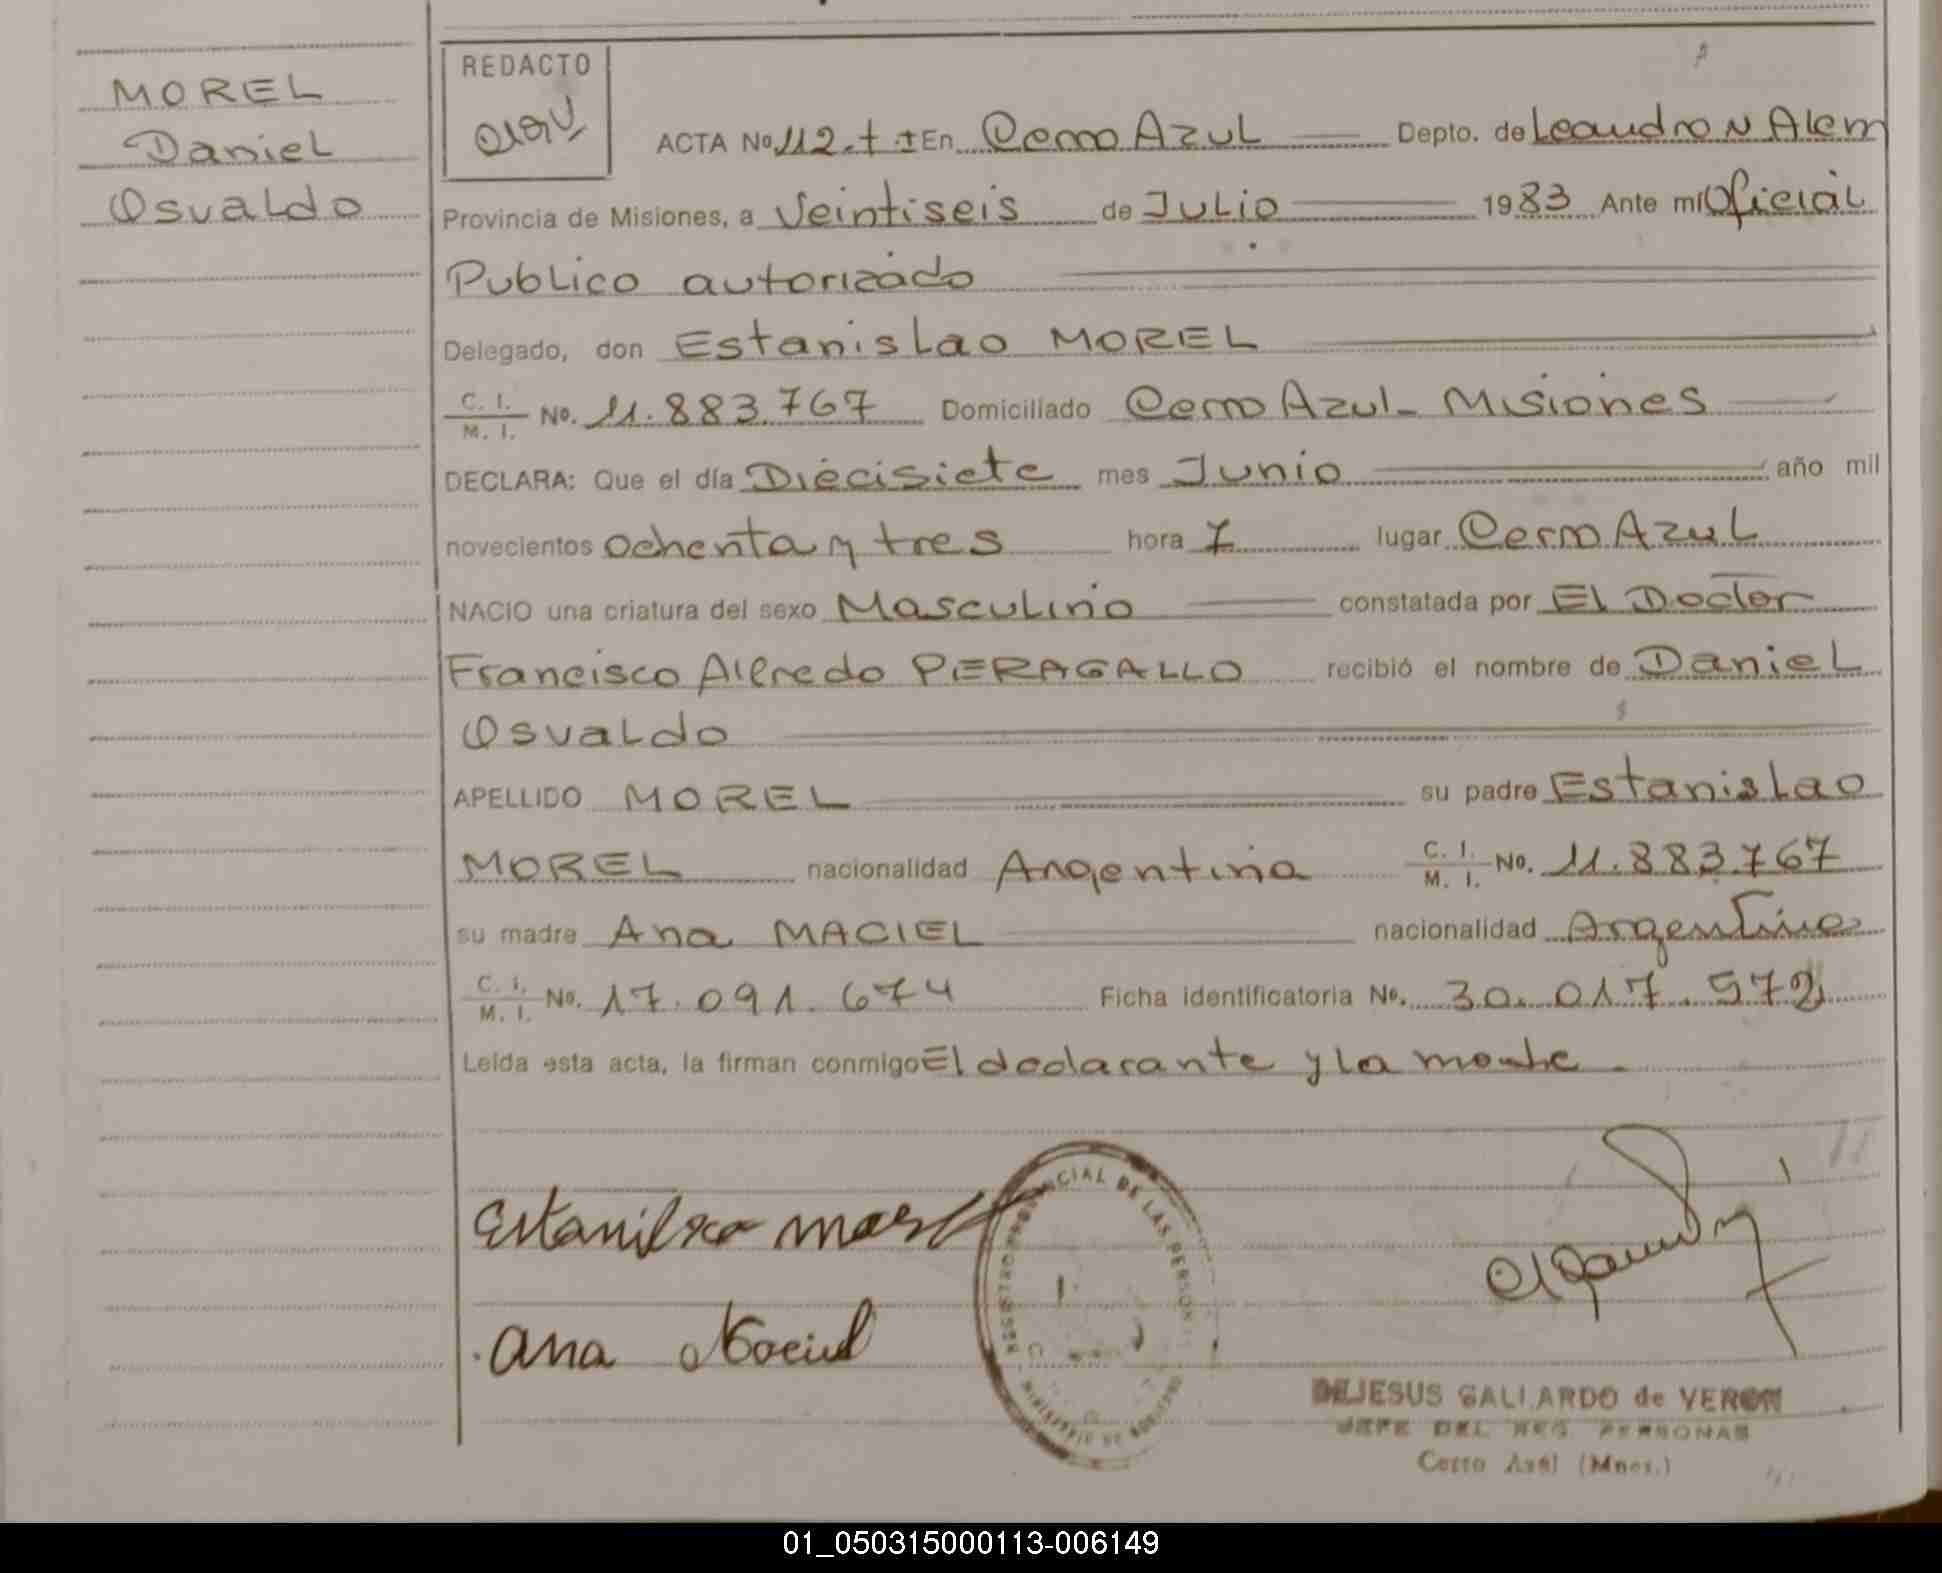 MOREL
Daniel
Osvaldo
REDACTO
ACTA No 112.- En Cerro Azul Depto. de Leandro N Alem
Provincia de Misiones, a Veintiseis de Julio 1983 Ante mí Oficial
Publico autorizado
Delegado, don Estanislao MOREL
C. I. / M. I. No. 11.883.767 Domiciliado Cerro Azul - Misiones
DECLARA: Que el día Diecisiete mes Junio año mil
novecientos ochenta y tres hora 7 lugar Cerro Azul
NACIO una criatura del sexo Masculino constatada por El Doctor
Francisco Alfredo PERAGALLO recibió el nombre de Daniel
Osvaldo
APELLIDO MOREL su padre Estanislao
MOREL nacionalidad Argentina C. I. / M. I. No. 11.883.767
su madre Ana MACIEL nacionalidad Argentina
C. I. / M. I. No. 17.091.674 Ficha identificatoria No. 30.017.572
Leída esta acta, la firman conmigo El declarante y la madre.
Estanislao Morel
Ana Maciel
REGISTRO PROVINCIAL DE LAS PERSONAS
MINISTERIO DE GOBIERNO
DE JESUS GALLARDO de VERON
JEFE DEL REG. PERSONAS
Cerro Azul (Mnes.)
01_050315000113-006149